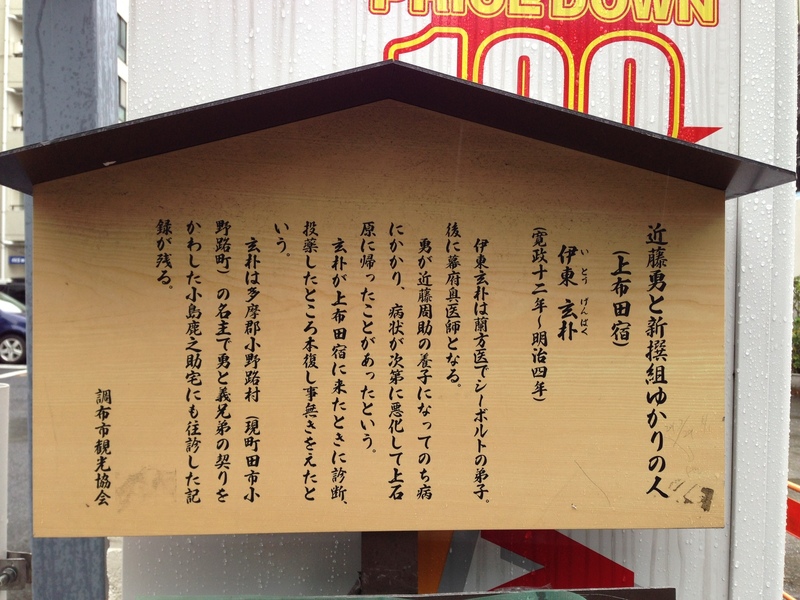 PRICE DOWN
100
近藤勇と新撰組ゆかりの人
(上布田宿)
伊東 玄朴
いとう げんぱく
(寛政十二年～明治四年)
伊東玄朴は蘭方医でシーボルトの弟子。
後に幕府奥医師となる。
勇が近藤周助の養子になってのち病
にかかり、病状が次第に悪化して上石
原に帰ったことがあったという。
玄朴が上布田宿に来たときに診断、
投薬したところ本復し事無きをえたと
いう。
玄朴は多摩郡小野路村（現町田市小
野路町）の名主で勇と義兄弟の契りを
かわした小島鹿之助宅にも往診した記
録が残る。
調布市観光協会